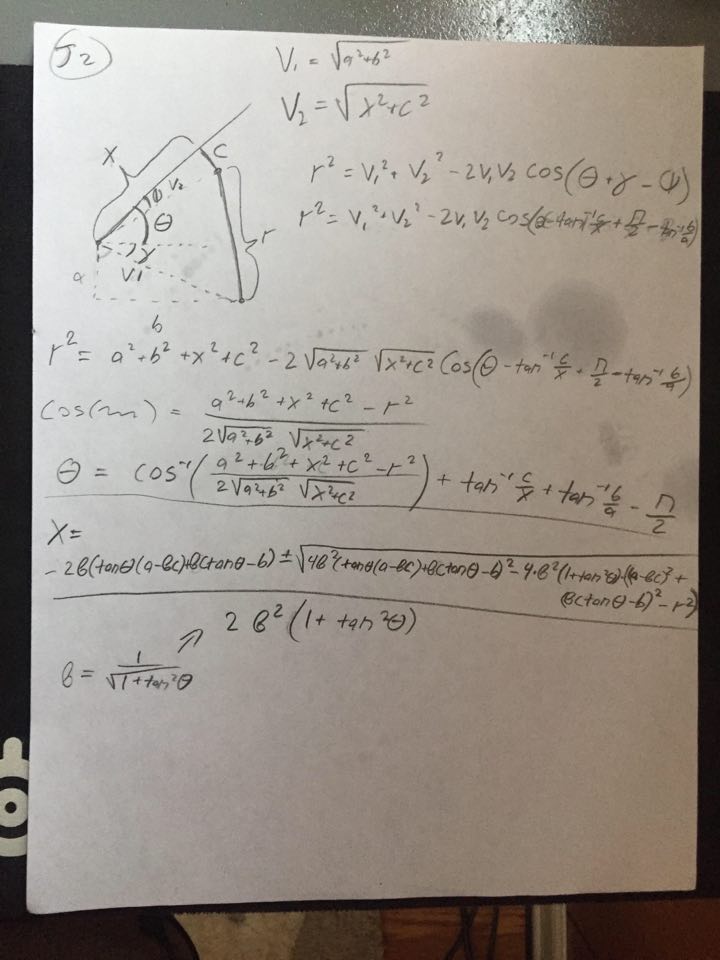 J2
V₁ = √(a²+b²)
V₂ = √(x²+c²)
r² = V₁² + V₂² - 2V₁V₂ cos(θ + γ - ψ)
r² = V₁² + V₂² - 2V₁V₂ cos(θ - tan⁻¹ c/x + π/2 - tan⁻¹ b/a)
x
c
ψ
V₂
θ
r
γ
a
V1
b
r² = a² + b² + x² + c² - 2√(a²+b²) √(x²+c²) Cos(θ - tan⁻¹ c/x + π/2 - tan⁻¹ b/a)
cos( ) = (a² + b² + x² + c² - r²) / (2√(a²+b²) √(x²+c²))
θ = cos⁻¹((a² + b² + x² + c² - r²) / (2√(a²+b²) √(x²+c²))) + tan⁻¹ c/x + tan⁻¹ b/a - π/2
X =
-2β(tanθ(a-βc)+βctanθ-b) ± √(4β²(tanθ(a-βc)+βctanθ-b)² - 4·β²(1+tan²θ)·((a-βc)² +
(βctanθ-b)² - r²)
2β²(1 + tan²θ)
β = 1/√(1+tan²θ)